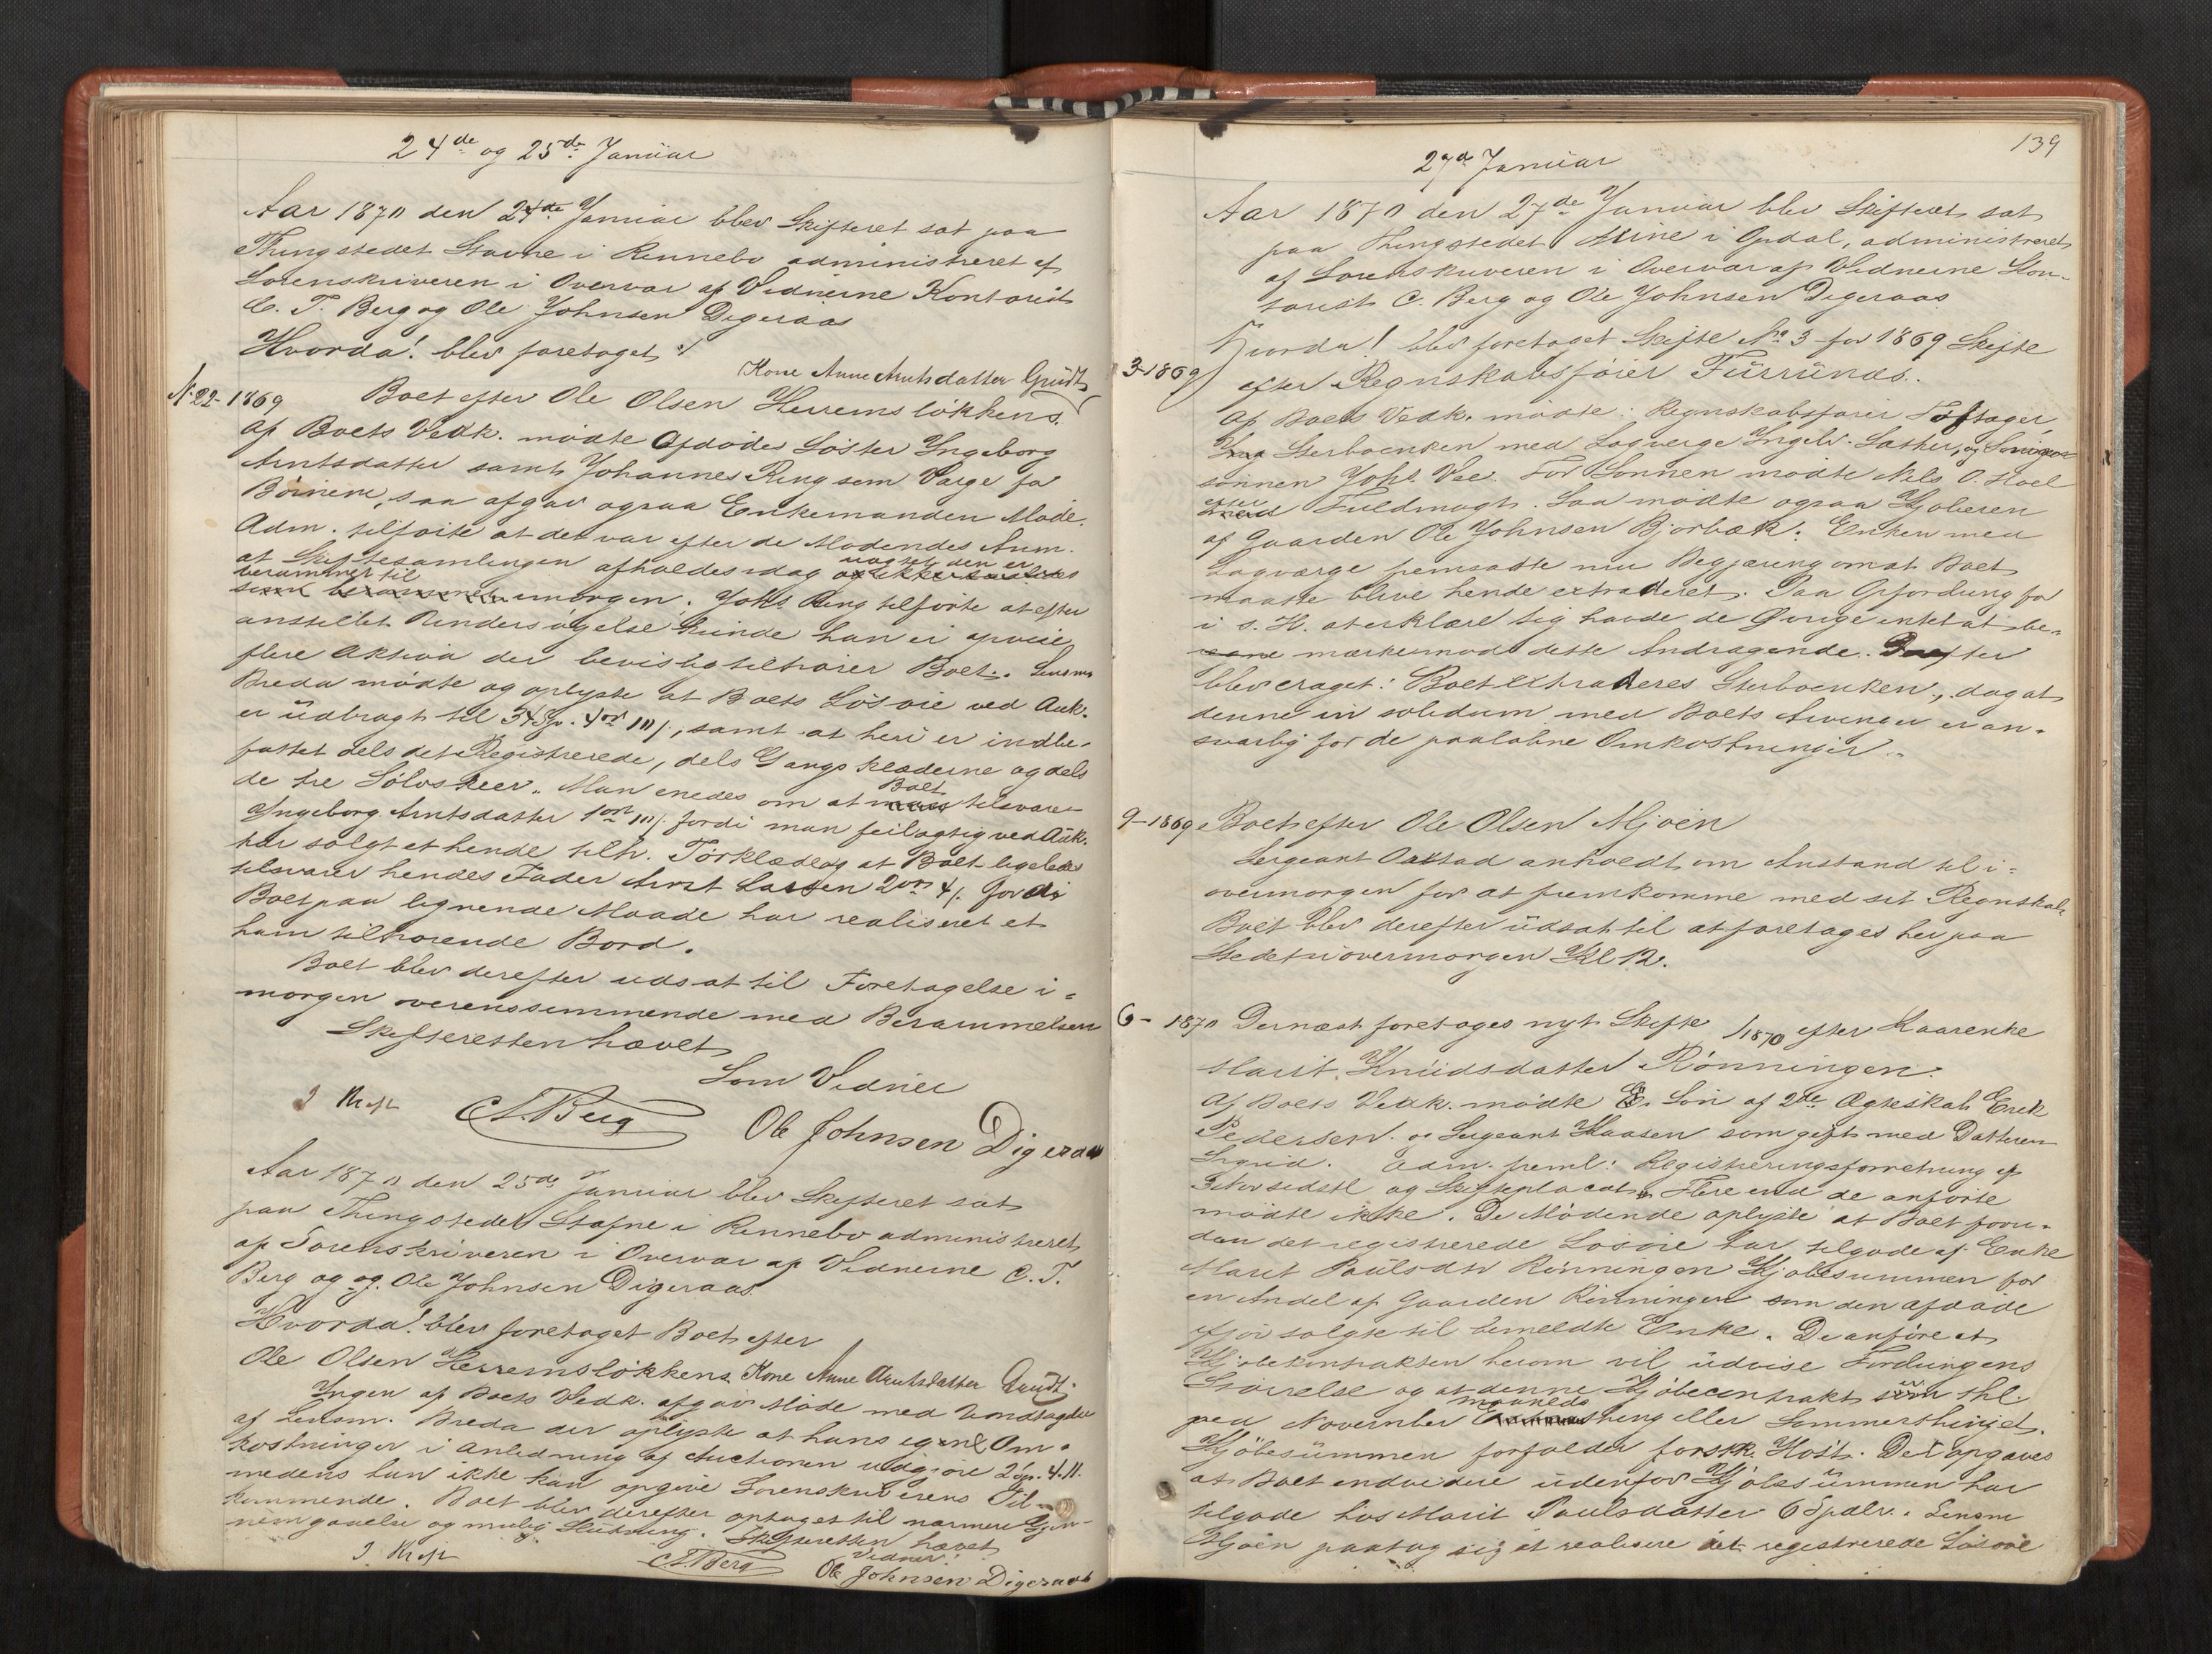 24de og 25de Januar
Aar 1870 den 24de Januar blev Skifteret sat paa
Thingstedet Stavne i Rennebo administreret af
Sorenskriveren i Overvar af Vidnerne Kontorist
C. T. Berg og Ole Johnsen Digeraas
Hvorda! blev foretaget:/
Kone Anne Arntsdatter Grindt
N. 22-1869 Boet efter Ole Olsen Herremsløkkens
Af Boets Vedk. mødte Afdødes Søster Ingeborg
Arntsdatter samt Johannes Ring som Værge for
Børnene, saa afgav ogsaa Enkemanden Møde.
Adm. tilførte at det var efter de Mødendes Anm.
at Skiftesamlingen afholdes idag uagtet den er
berammet til imorgen. Johs Ring tilførte at efter
anstillet Undersøgelse kunde han ei opvise
flere Aktiva der bevislig tilhører Boet. Lensm
Breda mødte og oplyste at Boets Løsøre ved Auk.
er udbragt til 34 Sp. 4 ort 11 s, samt at heri er indbe-
fattet dels det Registrerede, dels Gangklæderne og dels
de tre Sølvskeer. Man enedes om at Boet tilsvarer
Ingeborg Arntsdatter 1 ort fordi man feilagtig ved Auk.
har solgt et hende tilh. Tørklæde og at Boet ligeledes
tilsvarer hendes Fader Arnt Larsen 2 ort 4 s. fordi
Boet paa lignende Maade har realiseret et
ham tilhørende Bord.
Boet blev derefter udsat til Foretagelse i=
morgen overensstemmende med Berammelsen
Skifteretten hævet
Som Vidner
J Kraft C.T. Berg Ole Johnsen Digeraas
Aar 1870 den 25de Januar blev Skifteret sat
paa Thingstedet Stafne i Rennebo administreret
af Sorenskriveren i Overvar af Vidnerne C. T.
Berg og og. Ole Johnsen Digeraas
Hvorda! blev foretaget Boet efter
Ole Olsen Herremsløkkens Kone Anne Arntsdatter Grindt
Ingen af Boets Vedk. afgav Møde med Undtagelse
af Lensm. Breda der oplyste at hans egne Om-
kostninger i Anledning af Auctionen udgjøre 2 Sp. 4. 11.
medens han ikke kan opgive Sorenskriverens Til-
kommende. Boet blev derefter optaget til nærmere Gjen-
nemgaaelse og mulig Slutning. Skifteretten hævet
Vidner:
J. Kraft C.T. Berg Ole Johnsen Digeraas
139
27d Januar
Aar 1870 den 27de Januar blev Skifteret sat
paa Thingstedet Aune i Opdal, administreret
af Sorenskriveren i Overvar af Vidnerne Kon-
torist C. Berg og Ole Johnsen Digeraas
Hvorda! blev foretaget Skifte No 3 for 1869 Skifte
3-1869 efter Regnskabsfører Furrunds.
Af Boets Vedk. mødte: Regnskabsfører
Sterboenken med Laugværge Ingebr. Sæther, og
sønnen Johs Vee. For Sønnen mødte Nils O. Hoel
efter Fuldmagt. Saa mødte ogsaa Kjøberen
af Gaarden Ole Johnsen Bjørbæk. Enken med
Laugværge fremsatte nu Begjæring om at Boet
maatte blive hende extraderet. Paa Opfordring for
i s. H. at erklære sig havde de Øvrige intet at be-
mærke mod dette Andragende. Derefter
blev eraget: Boet extraderes Sterboenken, dog at
denne in solidum med Boets Arvinger er an-
svarlig for de paaløbne Omkostninger.
9-1869 Boet efter Ole Olsen Mjøen
Sergeant Oustad anholdt om Anstand til i=
overmorgen for at fremkomme med sit Regnskab.
Boet blev derefter udsat til at foretages her paa
Stedet iovermorgen Kl 12.
6-1870 Dernæst foretoges nyt Skifte /1870 efter Kaarenke
Marit Knudsdatter Rønningen.
Af Boets Vedk. mødte E. Søn af 2de Ægteskab Erik
Pedersen og Sergeant Haasen som gift med Datteren
Sigrid. Adm. freml: Registreringsforretning af
sidstl og Skifteplacat. Flere end de anførte
mødte ikke. De Mødende oplyste at Boet foru-
den det registrerede Løsøre har tilgode af Enke
Marit Poulsdtr Rønningen Kjøbesummen for
en Andel af Gaarden Rønningen som den afdøde
ifjor solgte til bemeldte Enke. De anføre at
Kjøbekontrakten herom vil udvise Fordringens
Størrelse og at denne Kjøbecontrakt er thl.
ved November maaneds thing eller Sommerthinget.
Kjøbesummen forfalder førstk. Høst. Det opgaves
at Boet endvidere udenfor Kjøbesummen har
tilgode hos Marit Poulsdatter 6 Spdlr. Lensm
Mjøen paatog sig at realisere det registrerede Løsøre